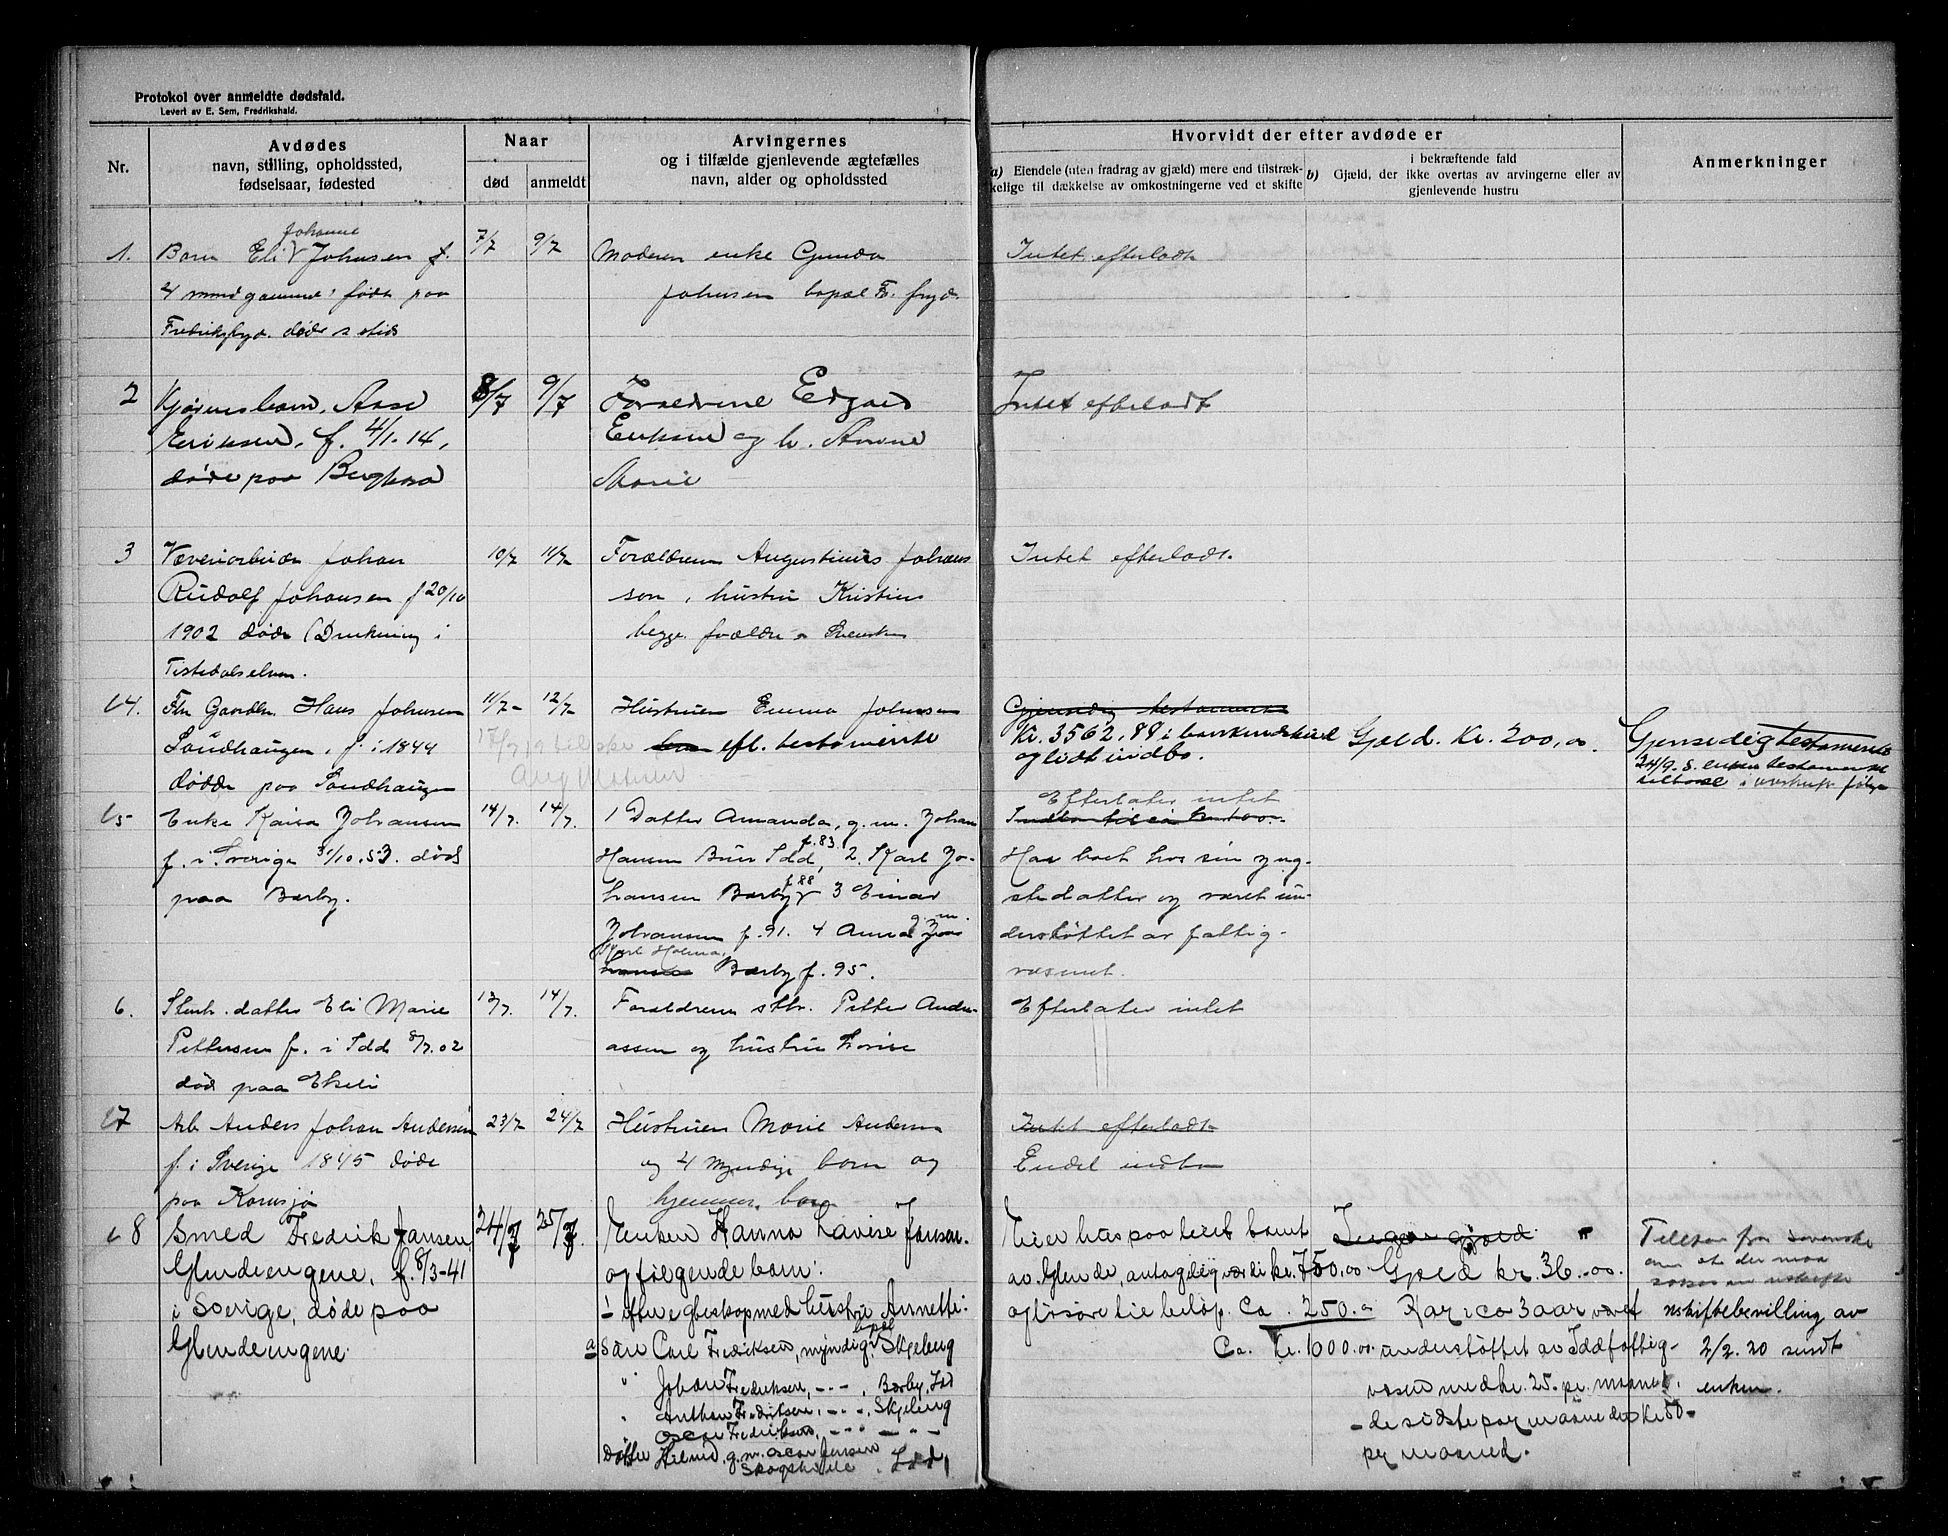 Protokol over anmeldte dødsfald.
Levert av E. Sem, Fredrikshald.
Nr.
Avdødes
navn, stilling, opholdssted,
fødselsaar, fødested
Naar
død
anmeldt
Arvingernes
og i tilfælde gjenlevende ægtefælles
navn, alder og opholdssted
Hvorvidt der efter avdøde er
a) Eiendele (uten fradrag av gjæld) mere end tilstræk-
kelige til dækkelse av omkostningerne ved et skifte
i bekræftende fald
b) Gjæld, der ikke overtas av arvingerne eller av
gjenlevende hustru
Anmerkninger
1.
Johanne
Barn Eli Johnsen f.
4 mmd gammel født paa
Fredriksfryd. døde s. sted
7/7
9/7
Moderen enke Gunda
Johnsen bopæl Fr. fryd.
Intet efterladt
2
Aase
Eriksen, f. 4/1-14,
døde paa
8/7
9/7
Forældrene Edgard
Eriksen og h. Anne
Marie
Intet efterladt
3
Væveriarbeider Johan
Rudolf Johansen f 20/10
1902 døde (Drukning i
Tistedalselven.
10/7
11/7
Forældrene Augustinus Johans
son, hustru Kristine
begge forældre Svenske
Intet efterladt.
4.
Fhv Gaardbr. Hans Johnsen
Sandhaugen, f. i 1844
døde paa Sandhaugen
11/7
12/7
Hustruen Emma Johnsen
efl. testamente
Gjensidig testamente
Kr. 3562,88 i
og lidt indbo.
Gjeld. Kr. 200,00.
Gjensidig testamente
24/9. s. enken
5
Enke Kaisa Johansen
f. i Sverige 31/10.53. død
paa Bærby.
14/7.
14/7.
1 Datter Amanda, g.m. Johan
f. 83
Hansen Buer Idd, 2. Karl Jo-
f. 88
hansen Bærby 3 Einar
Johansen f. 91. 4 Anna
g. m.
Karl Holma,
Bærby f. 95.
Efterlater intet
Har boet hos sin yng-
ste datter og været un-
derstøttet av fattig-
væsenet.
6.
Stenh. datter Eli Marie
Pettersen f. i Idd 8/7.02
død paa Ekeli
13/7.
14/7.
Forældrene sthr. Petter Andre-
assen og hustru Lovise
Efterlater intet
7
Arb Anders Johan Andersen
f. i Sverige 1845 døde
paa Kornsjø
23/7
24/7
Hustruen Marie Andersen
og 4 myndige barn og
hjemmev. barn
Intet efterladt
Endel indbo
8
Smed Fredrik Jansen
Glendeengene, f. 8/3-41
i Sverige, døde paa
Glendeengene
24/7
25/7
Enken Hanna Lovise Jansen.
og følgende barn:
i efter egteskap med hustru Annette:
bopæl
a Søn Carl Fredriksen, myndig, Skjeberg
" Johan Fredriksen, -"-, Bærby, Idd
" Anthon Fredriksen, -"-, Skjeberg
Oscar Fredriksen, -"-
Datter Helene, g.m. Oscar Jensen
Idd,
Eier hus paa leiet tomt
av Glende, antagelig værdi kr. 750,00
og løsøre til beløp. Ca. 250.
Ca. Kr. 1000.00
Ingen gjæld
Gjæld kr. 36.00.
Har i ca 3 aar været
understøttet av Idd fattig-
væsen med kr. 25. pr. maaned.
- de sidste par maaneder kr 50-
pr maaned.
Telefon fra
om at der maa
uskiftebevilling av
2/2. 20 sendt
enken.